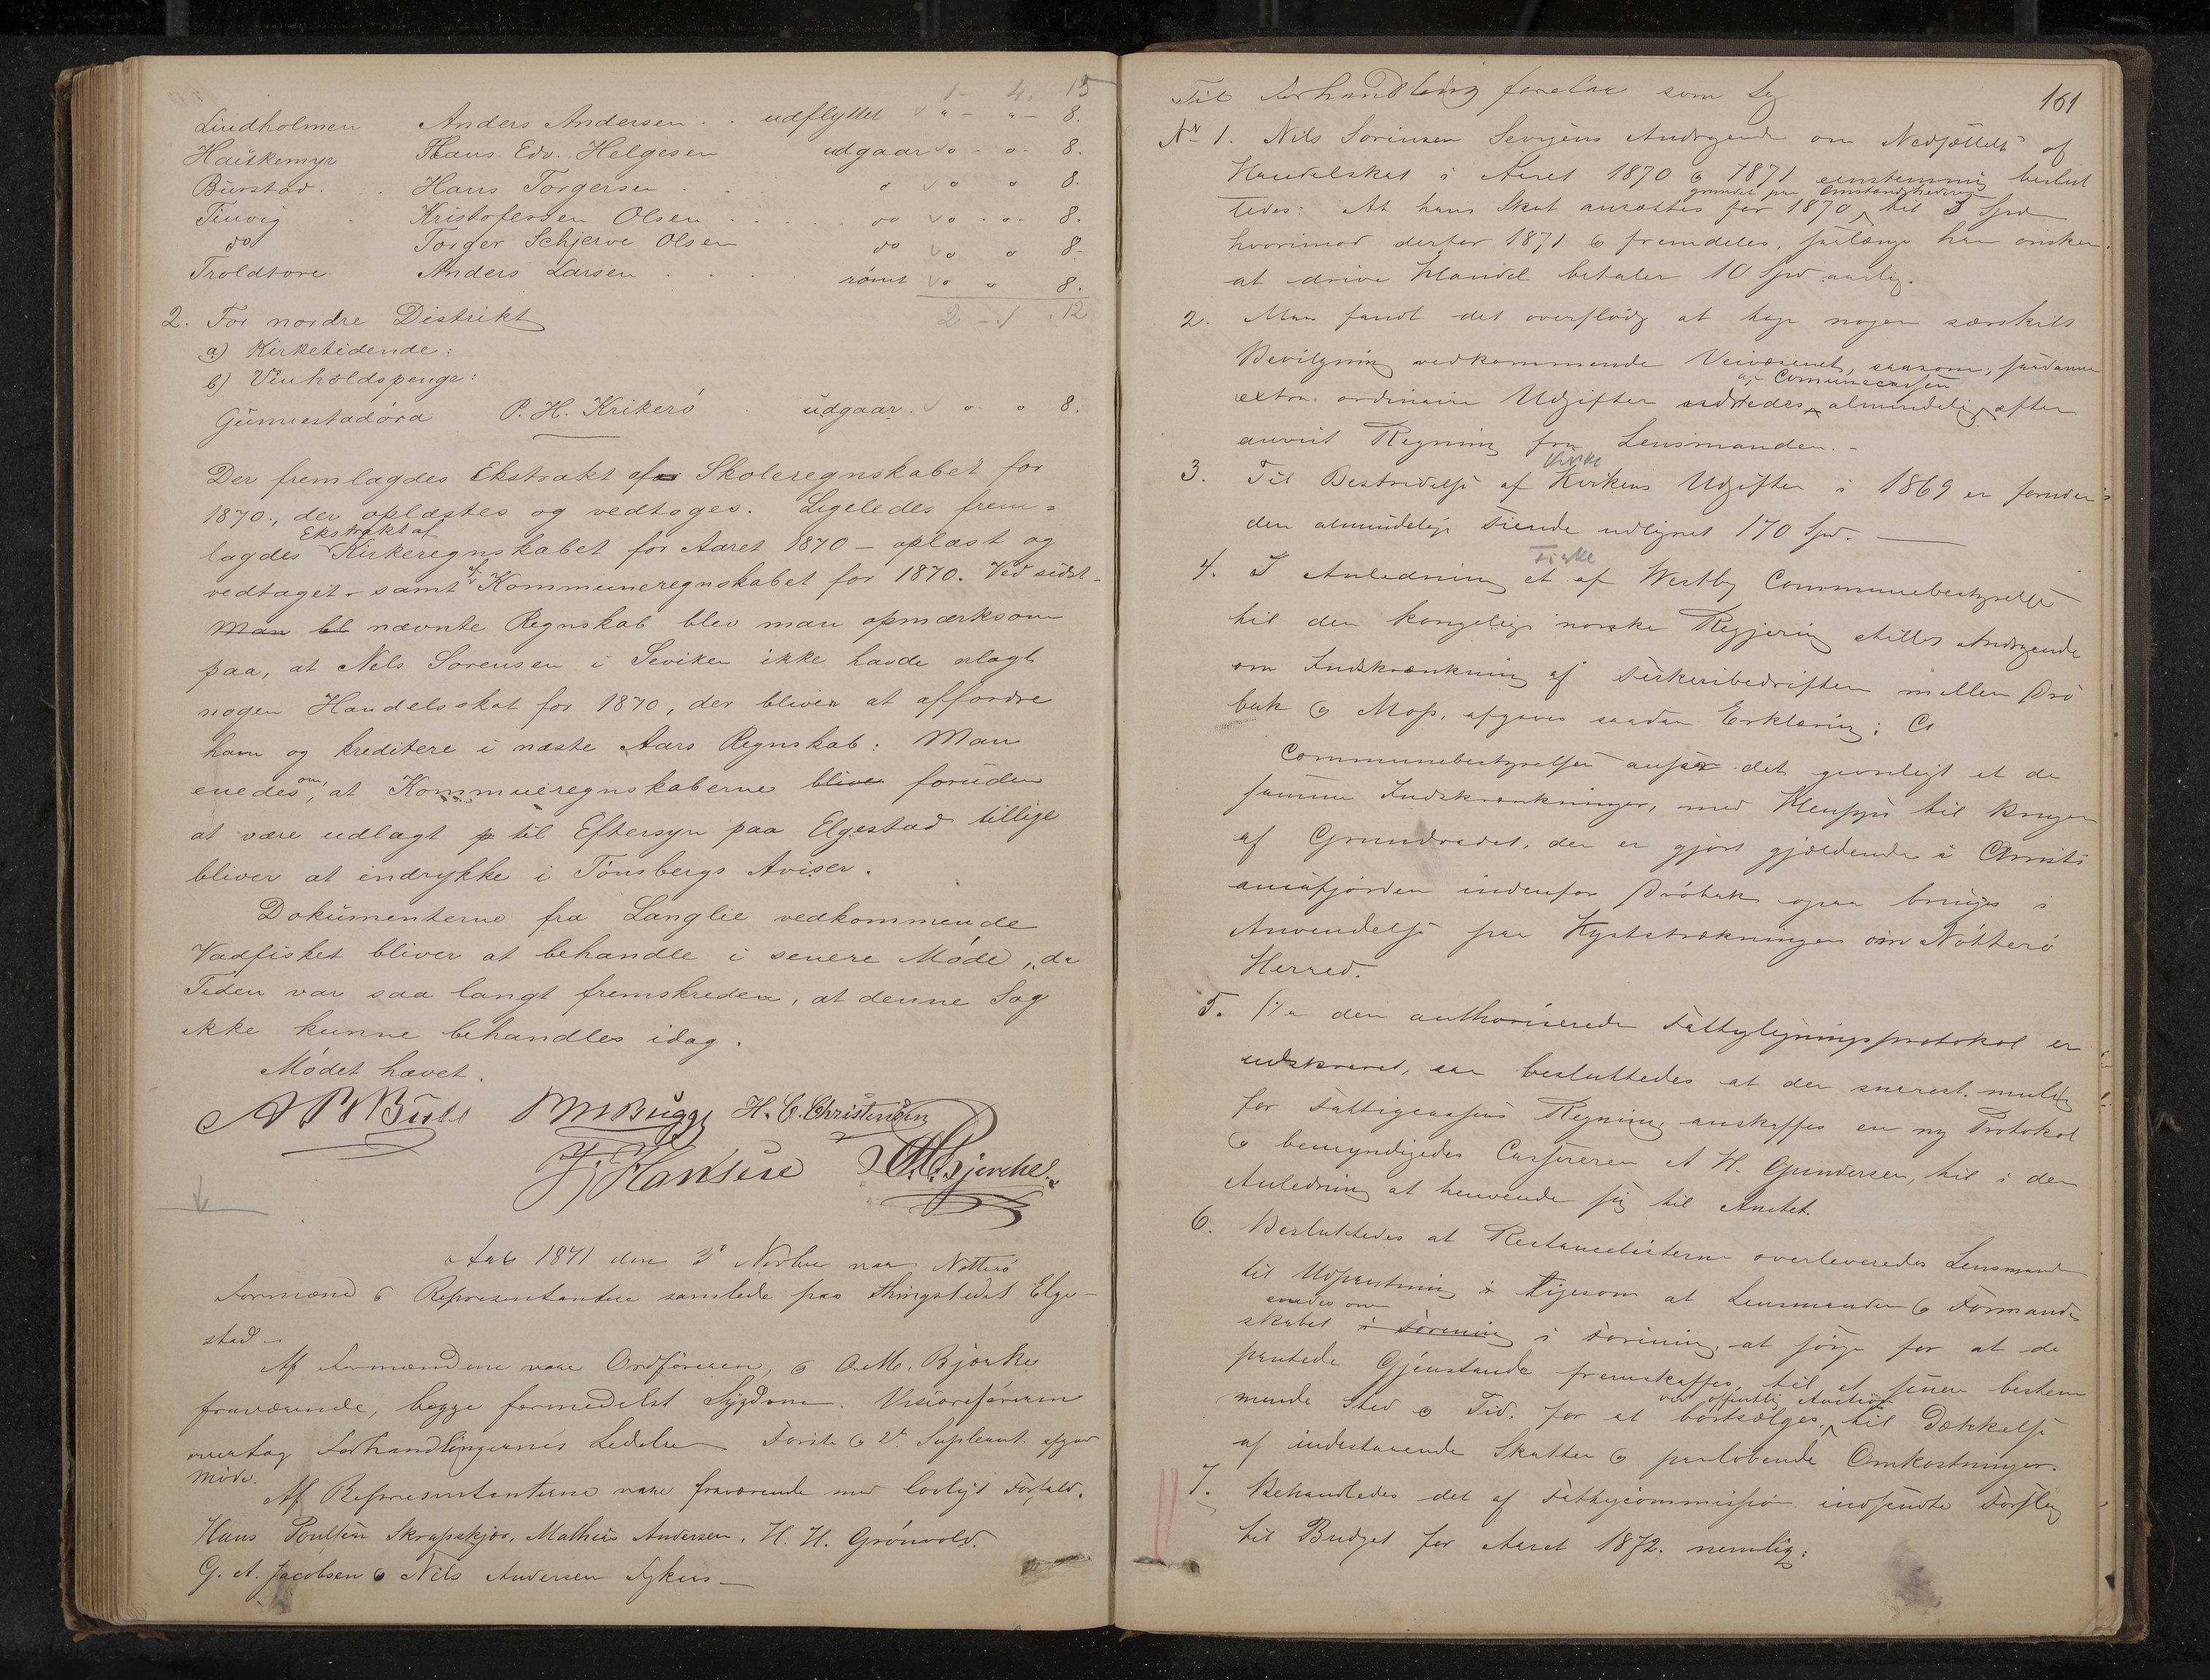 1 - 4. 15
Lindholmen Anders Andersen . . udflyttet " - " - 8.
Hauskemyr Hans Edv. Helgesen udgaar o - o - 8.
Burstad . . Hans Torgersen . . o o o 8.
Tinvig . Kristofersen Olsen . . . . do o . o - 8.
do Torger Schjerve Olsen do o o 8.
Troldtore Anders Larsen . . . rømt o o 8.
2 - 1 . 12
2. For nordre Distrikt
a) Kirketidende:
b) Vinholdspenge:
Gunnestadøra P. H. Krikerø udgaar. o o 8.
Der fremlagdes Ekstrakt af Skoleregnskabet for
1870., der oplæstes og vedtoges. Ligeledes frem=
Ekstrakt af
lagdes Kirkeregnskabet for Aaret 1870 – oplæst og
vedtaget – samt af Kommuneregnskabet for 1870. Ved sidst-
Man bl nævnte Regnskab blev man opmærksom
paa, at Nels Sørensen i Seviken ikke havde erlagt
nogen Handelsskat for 1870, der bliver at affordre
ham og kreditere i næste Aars Regnskab: Man
enedes om, at Kommueregnskaberne blive foruden
at være udlagt p til Eftersyn paa Elgestad tillige
bliver at indrykke i Tønsbergs Aviser.
Dokumenterne fra Langlie vedkommende
Vadfisket bliver at behandle i senere Møde, da
Tiden var saa langt fremskreden, at denne Sag
ikke kunne behandles idag.
Mødet hævet.
Bugge H. C. Christensen
J. Hansen
Aar 1871 den 3' Novber var Nøtterø
Formænd & Representantere samlede paa Thingstedet Elge-
stad –
Af Formændene vare Ordføreren, & O. M. Bjerke
fraværende, begge formedelst Sygdom. Viseordføreren
overtog Forhandlingernes Ledelse Første & 2de Supleant. afgav
Møde.
Af Representanterne vare fraværende med lovligt Forfald.
Hans Poulsen Skrapskjær, Mathias Andersen, H. H. Grønvold.
G. A. Jacobsen & Nils Andersen
161
Til Forhandling forelaa som
No 1. Nils Sørensen Sevigens Andragende om Nedsættelse af
Handelskat i Aaret 1870 & 1871 eenstemmig beslut
grundet paa Omstændighederne
tedes: At hans Skat ansættes for 1870 til 5 Spd
hvorimod derfor 1871 & fremdeles, saalænge han ønsker
at drive Handel betaler 10 Spd aarlig.
2. Man fandt det overflødig at tage nogen særskilt
Bevilgning vedkommende Veivæsenet, saasom, saadanne
af Communecassen
extra ordinaire Udgifter udredes almindelig efter
anviist Regning fra Lensmanden. –
Kirke
3. Til Bestridelse af Kirkens Udgifter i 1869 er foruden
den almindelige Tiende udlignet 170 Spd.
Fiske
4. I Anledning et af Westby Communebestyrelse
til den kongelige norske Regjering stillet Andragende
om Indskrænkning af Fiskeribedriften mellem Drø
bak & Moss, afgaves saadan Erklæring:
Communebestyrelsen anser det gavnligt at de
samme Indskrænkninger, med Hensyn til Brugen
af Grundredet, der er gjort gjældende i Christi
aniafjorden indenfor Drøbak ogsaa bringes i
Anvendelse paa Kyststrækningen om Nøtterø
Herred.
5. Da den authoriserede Fattigligningsprotokol er
udskrevet, saa besluttedes at der snarest mulig
for Fattigcassens Regning anskaffes en ny Protokol
& bemyndigedes Cassereren A H. Gundersen, til i den
Anledning at henvende sig til Amtet.
6. Besluttedes at Restancelisterne overleveredes Lensmand
til Udpantning i ligesom at Lensmanden & Formand-
enedes om
skabet i Forening i Forening, at sørge for at de
pantede Gjenstande fremskaffes, til et senere bestem
ved offentlig Auction
mende Sted & Tid. for at bortsælges til Dækkelse
af indestaaende Skatter & paaløbende Omkostninger.
7. Behandledes det af Fattigcommissionen indsendte Forslag
til Budget for Aaret 1872. nemlig: